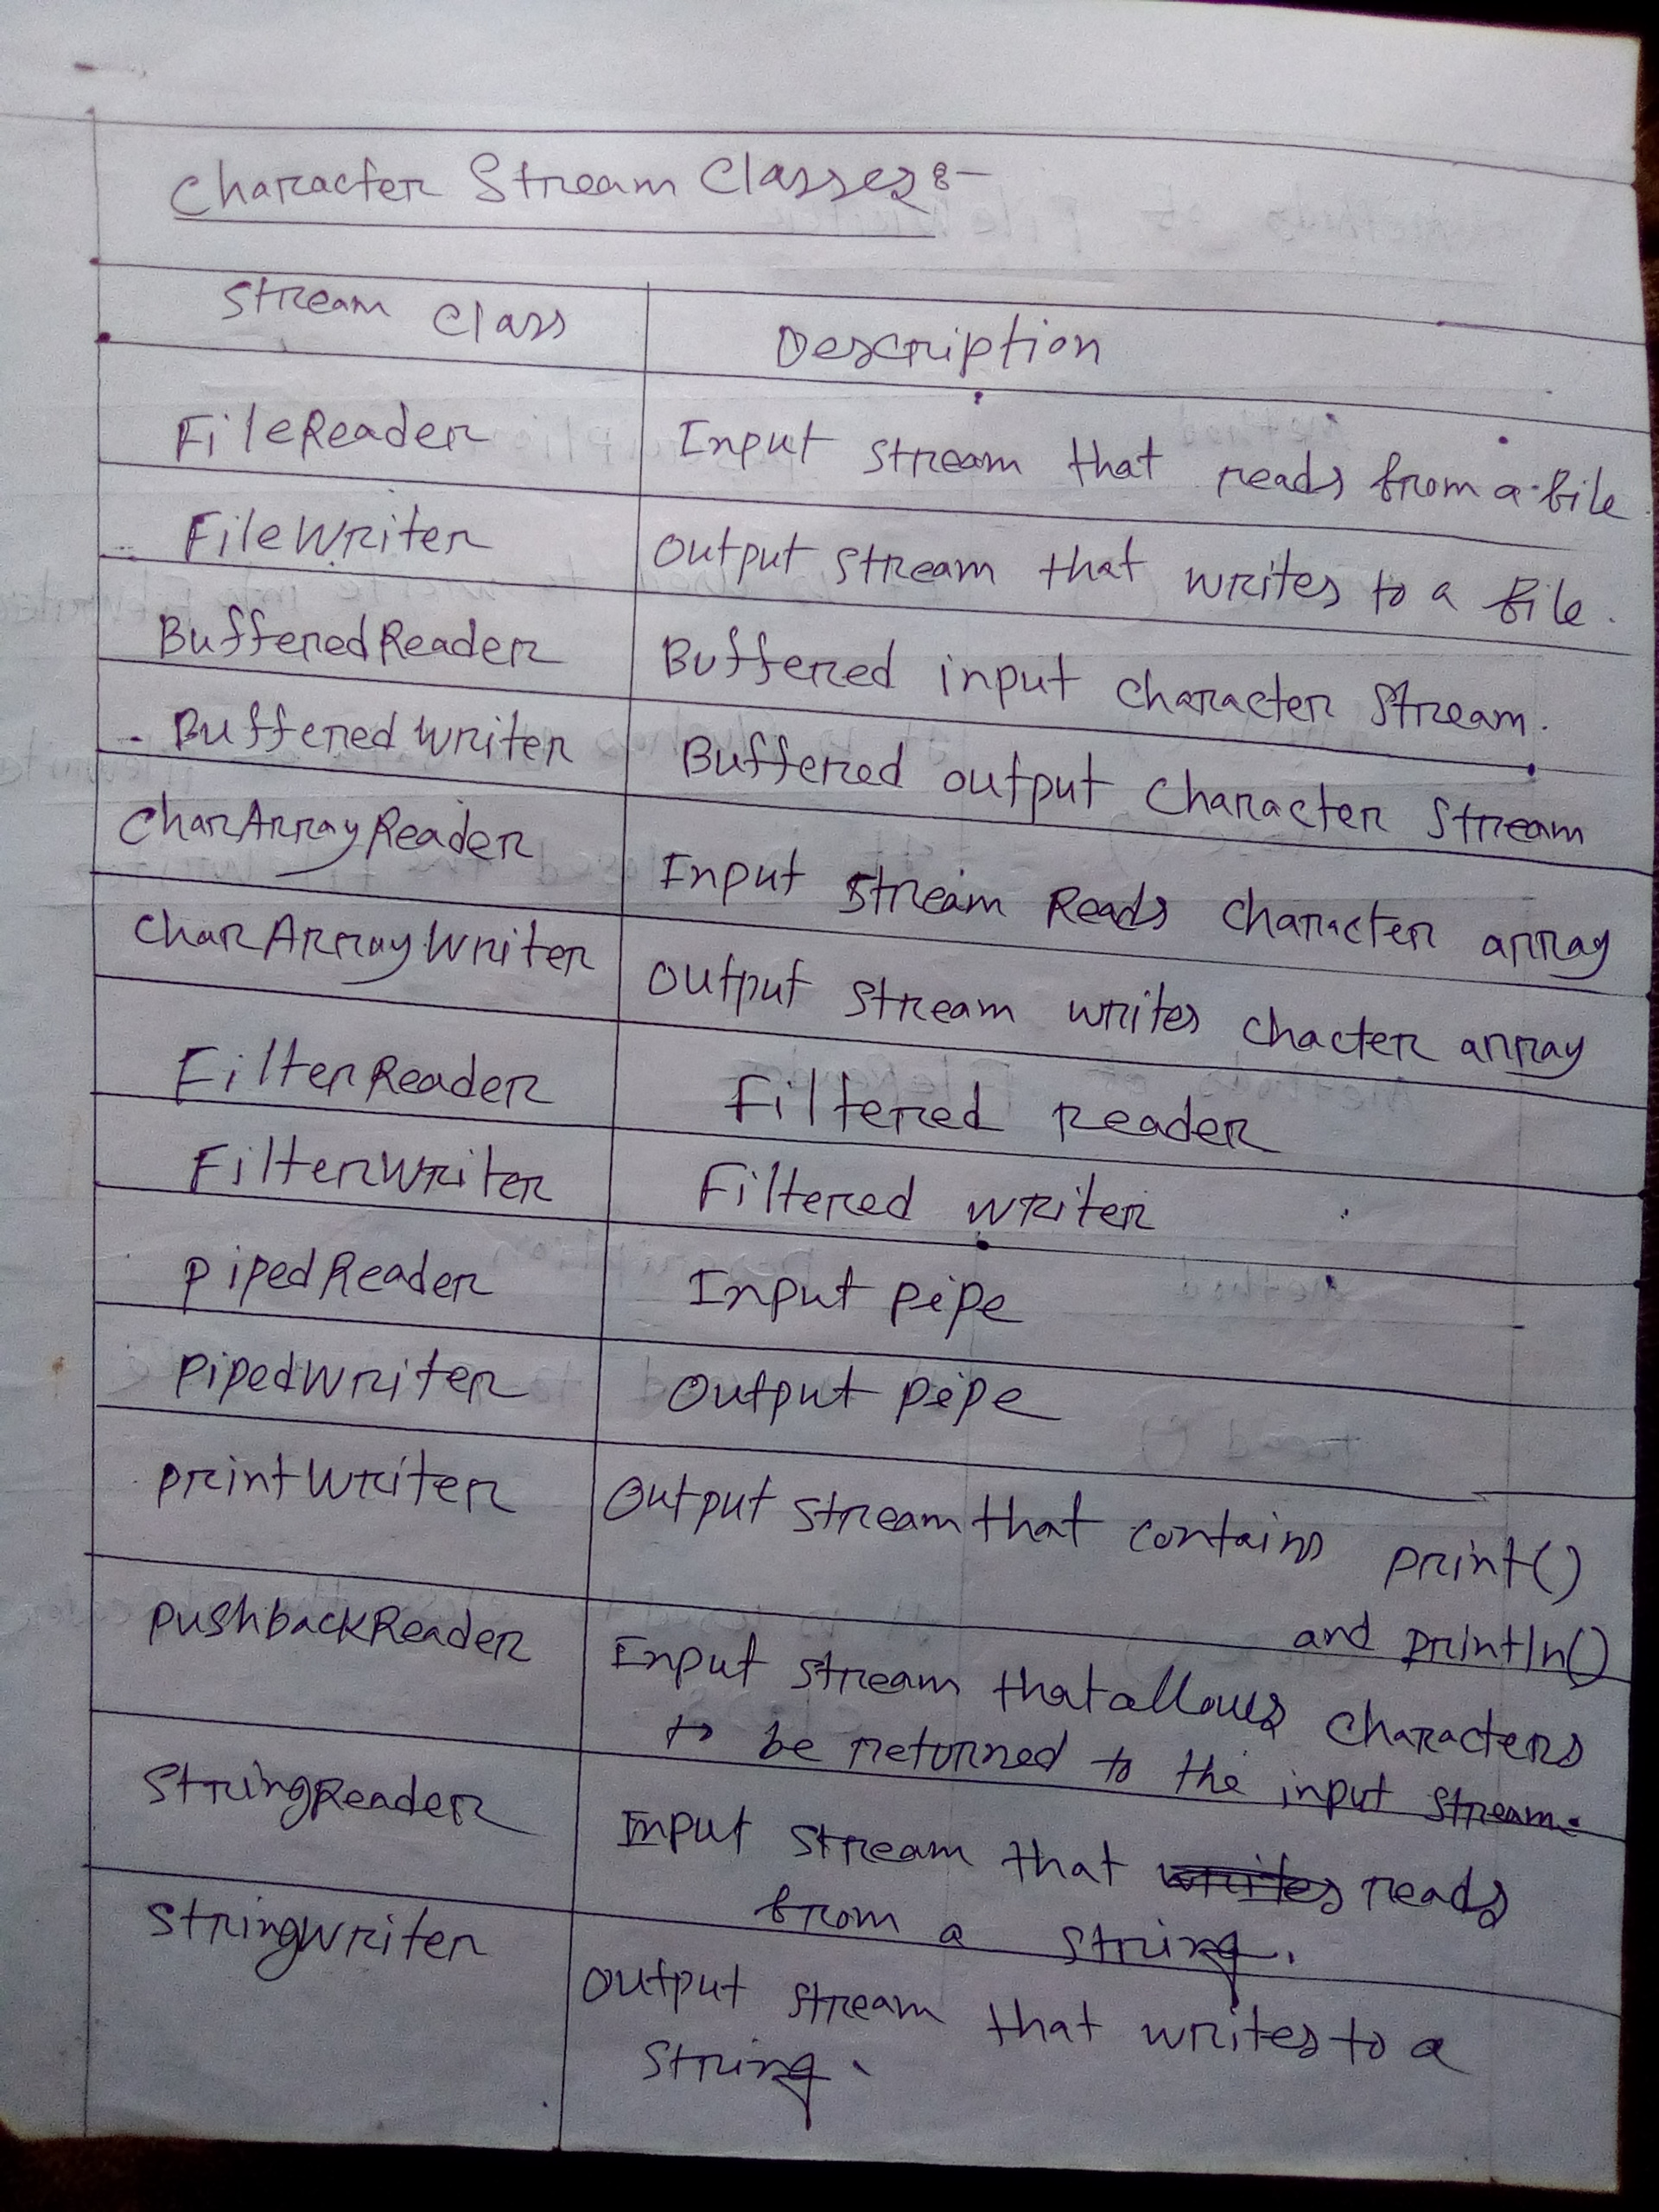 Character Stream Classes:-
Stream Class Description
FileReader Input stream that reads from a file.
FileWriter Output stream that writes to a file.
BufferedReader Buffered input character Stream.
BufferedWriter Buffered output character Stream
CharArrayReader Input stream Reads character array
CharArrayWriter Output stream writes chacter array
FilterReader Filtered reader
FilterWriter Filtered writer
pipedReader Input pipe
pipedWriter Output pipe
printWriter Output stream that contains print()
and println()
pushbackReader Input stream that allows characters
to be returned to the input stream.
StringReader Input stream that writes reads
from a string.
StringWriter Output stream that writes to a
String.